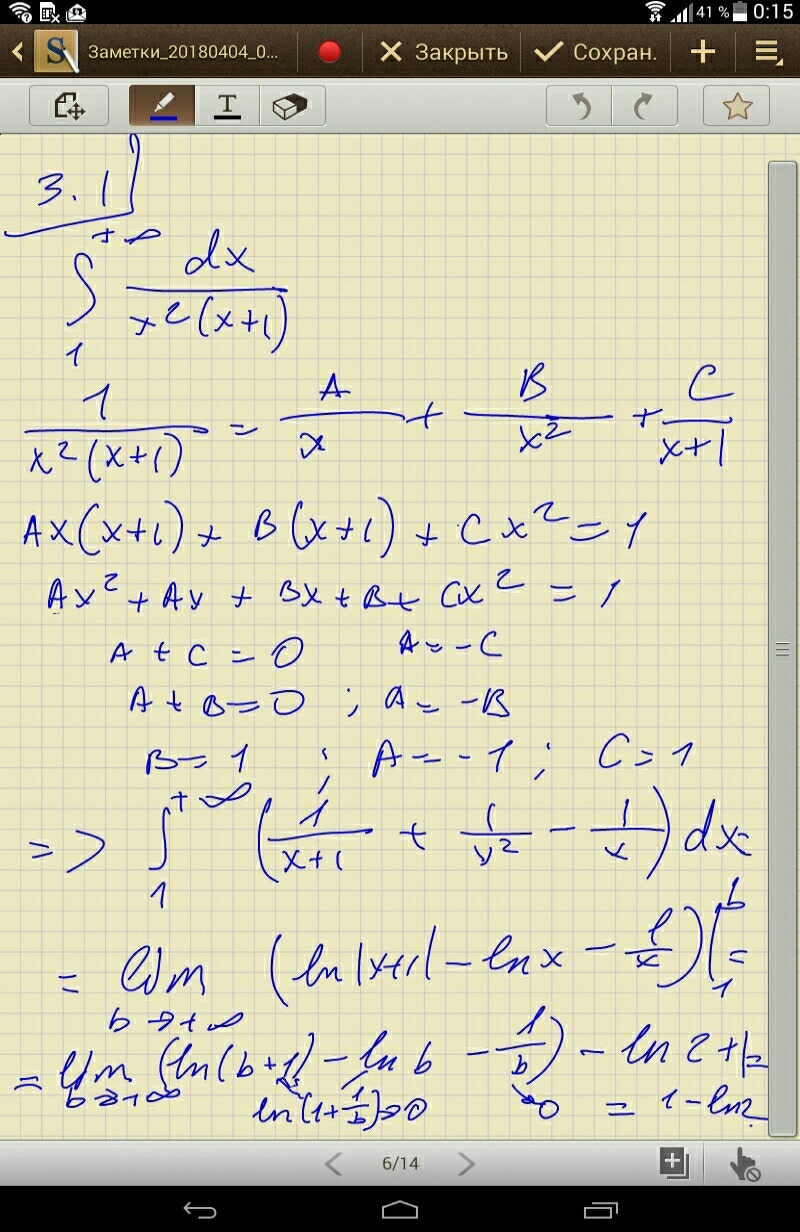 41 % 0:15
Заметки_20180404_0... Закрыть Сохран.
T
3.1
∫₁^{+∞} dx / (x²(x+1))
1 / (x²(x+1)) = A/x + B/x² + C/(x+1)
Ax(x+1) + B(x+1) + Cx² = 1
Ax² + Ax + Bx + B + Cx² = 1
A + C = 0 A = -C
A + B = 0 ; A = -B
B = 1 ; A = -1 ; C = 1
=> ∫₁^{+∞} (1/(x+1) + 1/x² - 1/x) dx =
= lim_{b→+∞} (ln|x+1| - ln x - 1/x) |₁^b =
= lim_{b→+∞} (ln(b+1) - ln b - 1/b) - ln 2 + 1 =
ln(1+1/b)→0 →0 = 1 - ln2
6/14